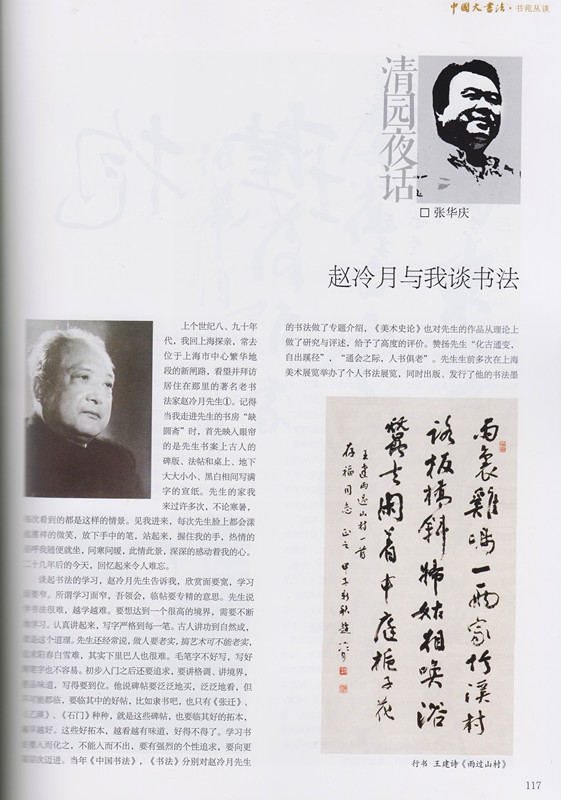 中國大書法·书苑丛谈
清园夜话
□ 张华庆
赵冷月与我谈书法
上个世纪八、九十年
代，我回上海探亲，常去
位于上海市中心繁华地
段的新闸路，看望并拜访
居住在那里的著名老书
法家赵冷月先生①。记得
当我走进先生的书房“缺
圆斋”时，首先映入眼帘
的是先生书案上古人的
碑版、法帖和桌上、地下
大大小小、黑白相间写满
字的宣纸。先生的家我
来过许多次，不论寒暑，
每次看到的都是这样的情景。见我进来，每次先生脸上都会漾
着那样的微笑，放下手中的笔，站起来，握住我的手，热情的
招呼我随便就坐，问寒问暖，此情此景，深深的感动着我的心。
二十几年后的今天，回忆起来令人难忘。
谈起书法的学习，赵冷月先生告诉我，欣赏面要宽，学习
面要窄。所谓学习面窄，吾领会，临帖要专精的意思。先生说
学书法很难，越学越难。要想达到一个很高的境界，需要不断
地学习。认真讲起来，写字严格到每一笔。古人讲功到自然成，
就是这个道理。先生还经常说，做人要老实，搞艺术可不能老实，
阳春白雪难，其实下里巴人也很难。毛笔字不好写，写好
笔字也不容易。初步入门之后还要追求，要讲格调、讲境界，
味道，写得要到位。他说碑帖要泛泛地买，泛泛地看，但
可能都临，要临其中的好帖，比如隶书吧，也只有《张迁》、
《石门》种种，就是这些碑帖，也要临其好的拓本，
好。这些好拓本，越看越有味道，好得不得了。学习书
人而化之，不能人而不出，要有强烈的个性追求，要向更
次迈进。当年《中国书法》，《书法》分别对赵冷月先生
的书法做了专题介绍，《美术史论》也对先生的作品从理论上
做了研究与评述，给予了高度的评价。赞扬先生“化古通变，
自出蹊径”，“通会之际，人书俱老”。先生生前多次在上海
美术展览举办了个人书法展览，同时出版、发行了他的书法墨
雨裏雞鳴一兩家竹溪村
路板橋斜婦姑相喚浴
蠶去閑着中庭梔子花
王建雨過山村一首
存福同志正之甲子新秋趙冷月
行书 王建诗《雨过山村》
117